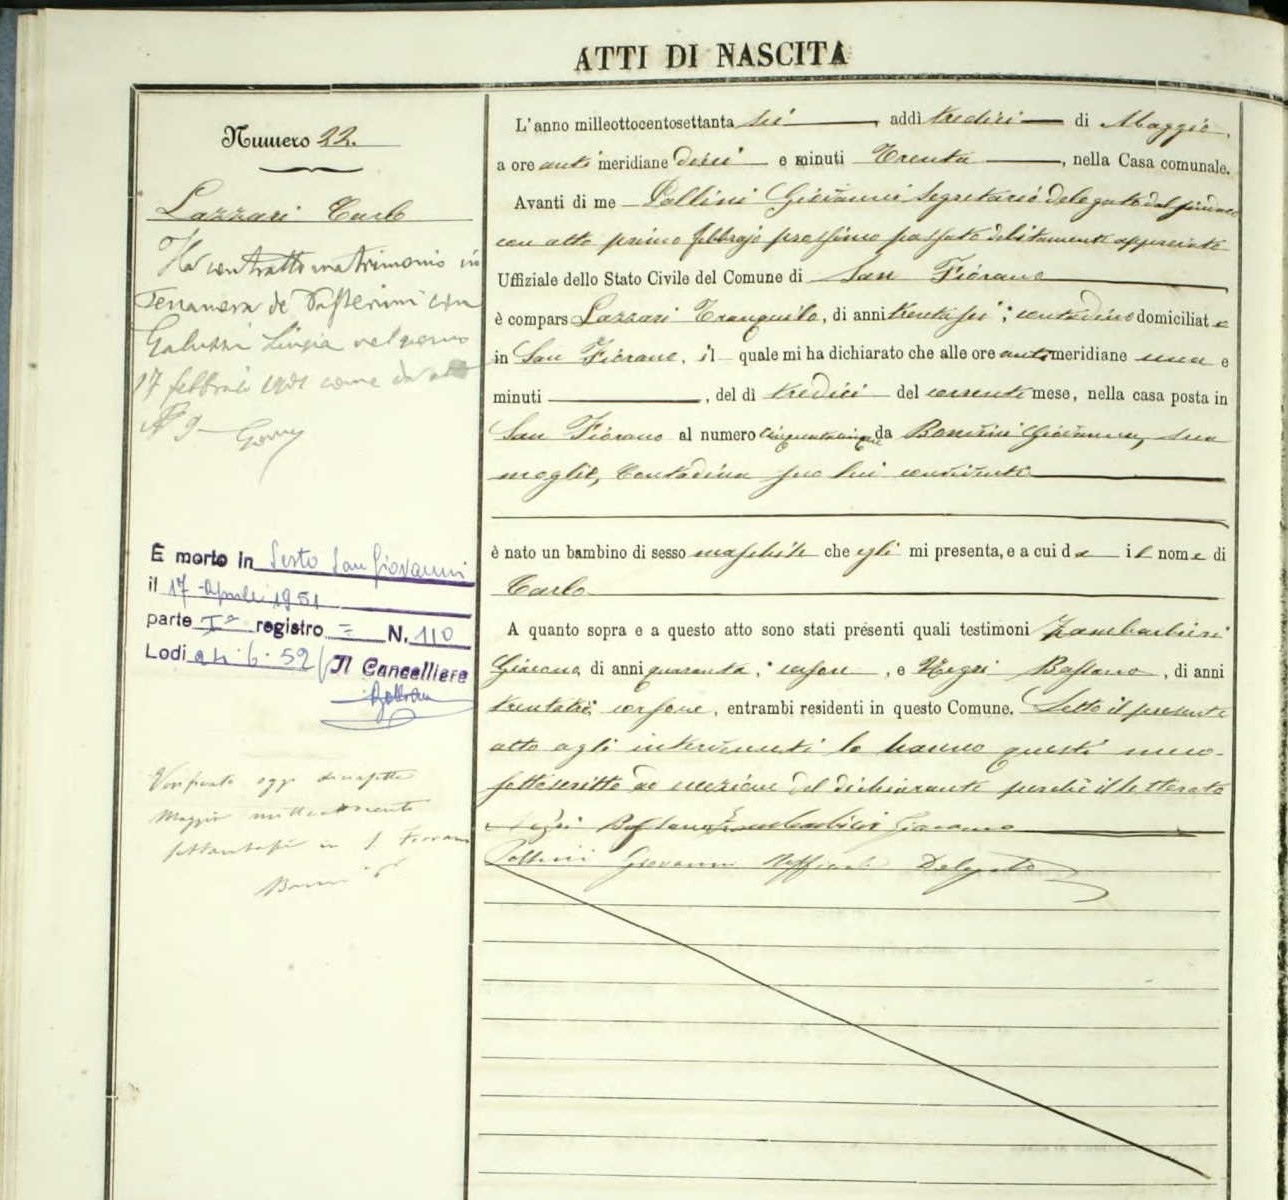 ATTI DI NASCITA
Numero 22.
Lazzari Carlo
Ha contratto matrimonio in
Terranova de' Passerini con
Galuzzi Livia nel giorno
17 febbraio 1901 come da atto
N 9
È morto in Sesto San Giovanni
il 17 Aprile 1951
parte Iª registro = N. 110
Lodi 6. 52 Il Cancelliere
Verificato oggi diciasette
Maggio milleottocento
settantasei in S. Fiorano
L'anno milleottocentosettanta sei, addì tredici di Maggio,
a ore anti meridiane dieci e minuti Trenta, nella Casa comunale.
Avanti di me Pollini Giovanni Segretario delegato dal sindaco
con atto primo febbrajo prossimo passato debitamente approvato
Uffiziale dello Stato Civile del Comune di San Fiorano
è compars Lazzari Tranquilo, di anni trentasei, contadino domiciliato
in San Fiorano, il quale mi ha dichiarato che alle ore antimeridiane una e
minuti, del dì tredici del corrente mese, nella casa posta in
San Fiorano al numero cinquantacinque da Giovanna, sua
moglie, Contadina seco lui convivente
è nato un bambino di sesso maschile che egli mi presenta, e a cui dà il nome di
Carlo
A quanto sopra e a questo atto sono stati presenti quali testimoni Zambarbieri
Giacomo, di anni quaranta, casaro, e Negri Bassano, di anni
trentatré, e, entrambi residenti in questo Comune. Letto il presente
atto agli intervenuti lo hanno questi meco
sottoscritto ad eccezione del dichiarante perchè illetterato
Negri Bassano Zambarbieri Giacomo
Pollini Giovanni Uffiziale Delegato